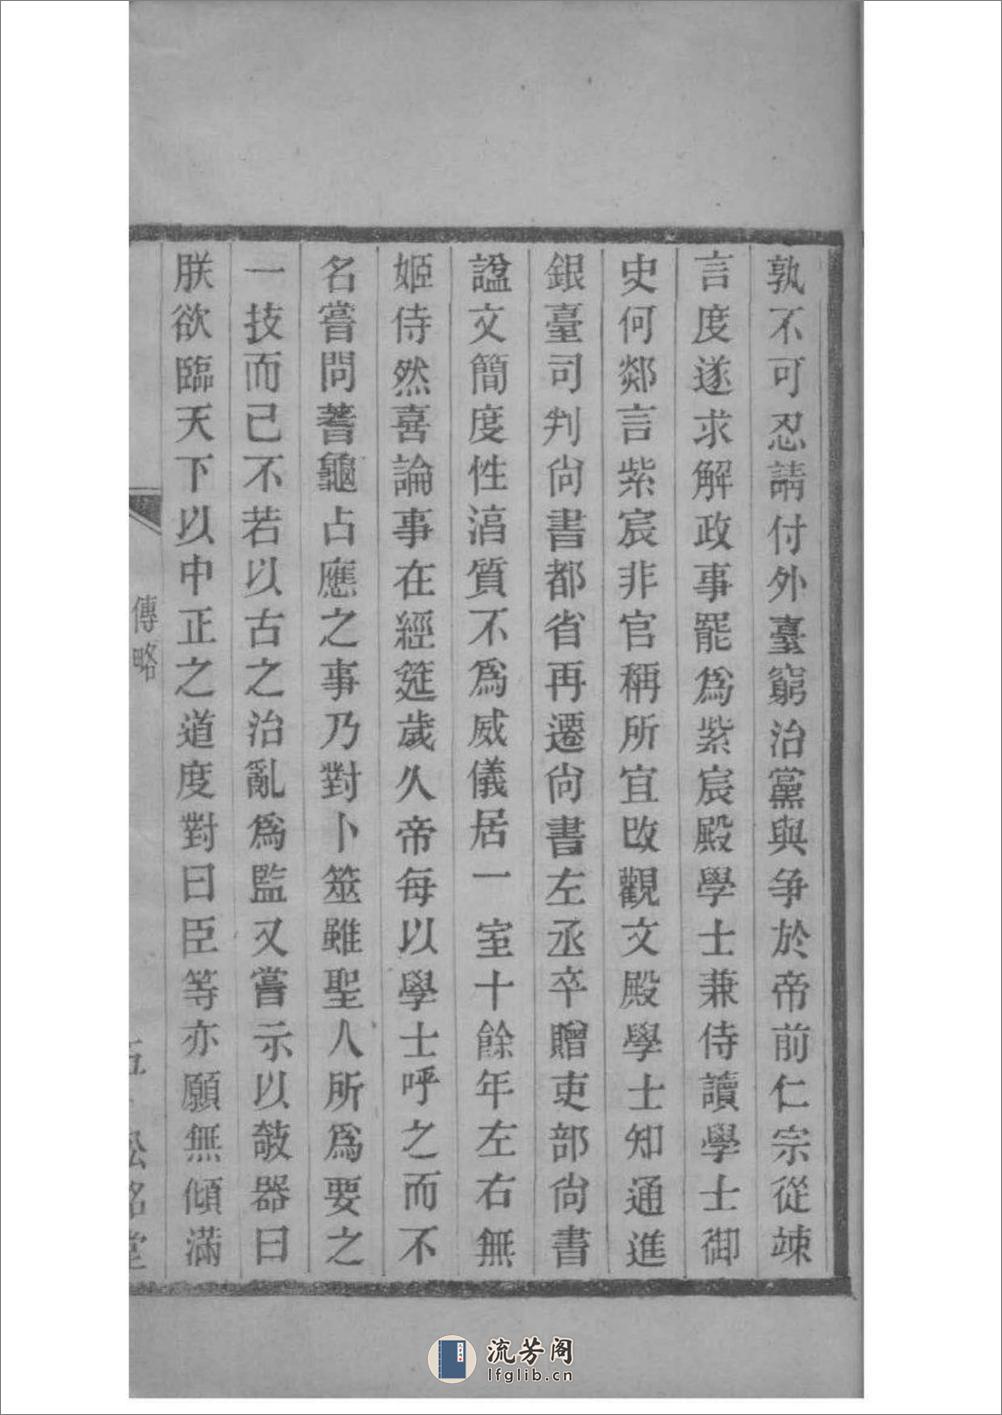 孰不可忍請付外臺窮治黨與爭於帝前仁宗從竦
言度遂求解政事罷爲紫宸殿學士兼侍讀學士御
史何郯言紫宸非官稱所宜改觀文殿學士知通進
銀臺司判尙書都省再遷尙書左丞卒贈吏部尙書
諡文簡度性湻質不爲威儀居一室十餘年左右無
姬侍然喜論事在經筵歲久帝每以學士呼之而不
名嘗問蓍龜占應之事乃對卜筮雖聖人所爲要之
一技而已不若以古之治亂爲監又嘗示以欹器曰
朕欲臨天下以中正之道度對曰臣等亦願無傾滿
傳略
五
松銘堂
流芳阁
lfglib.cn